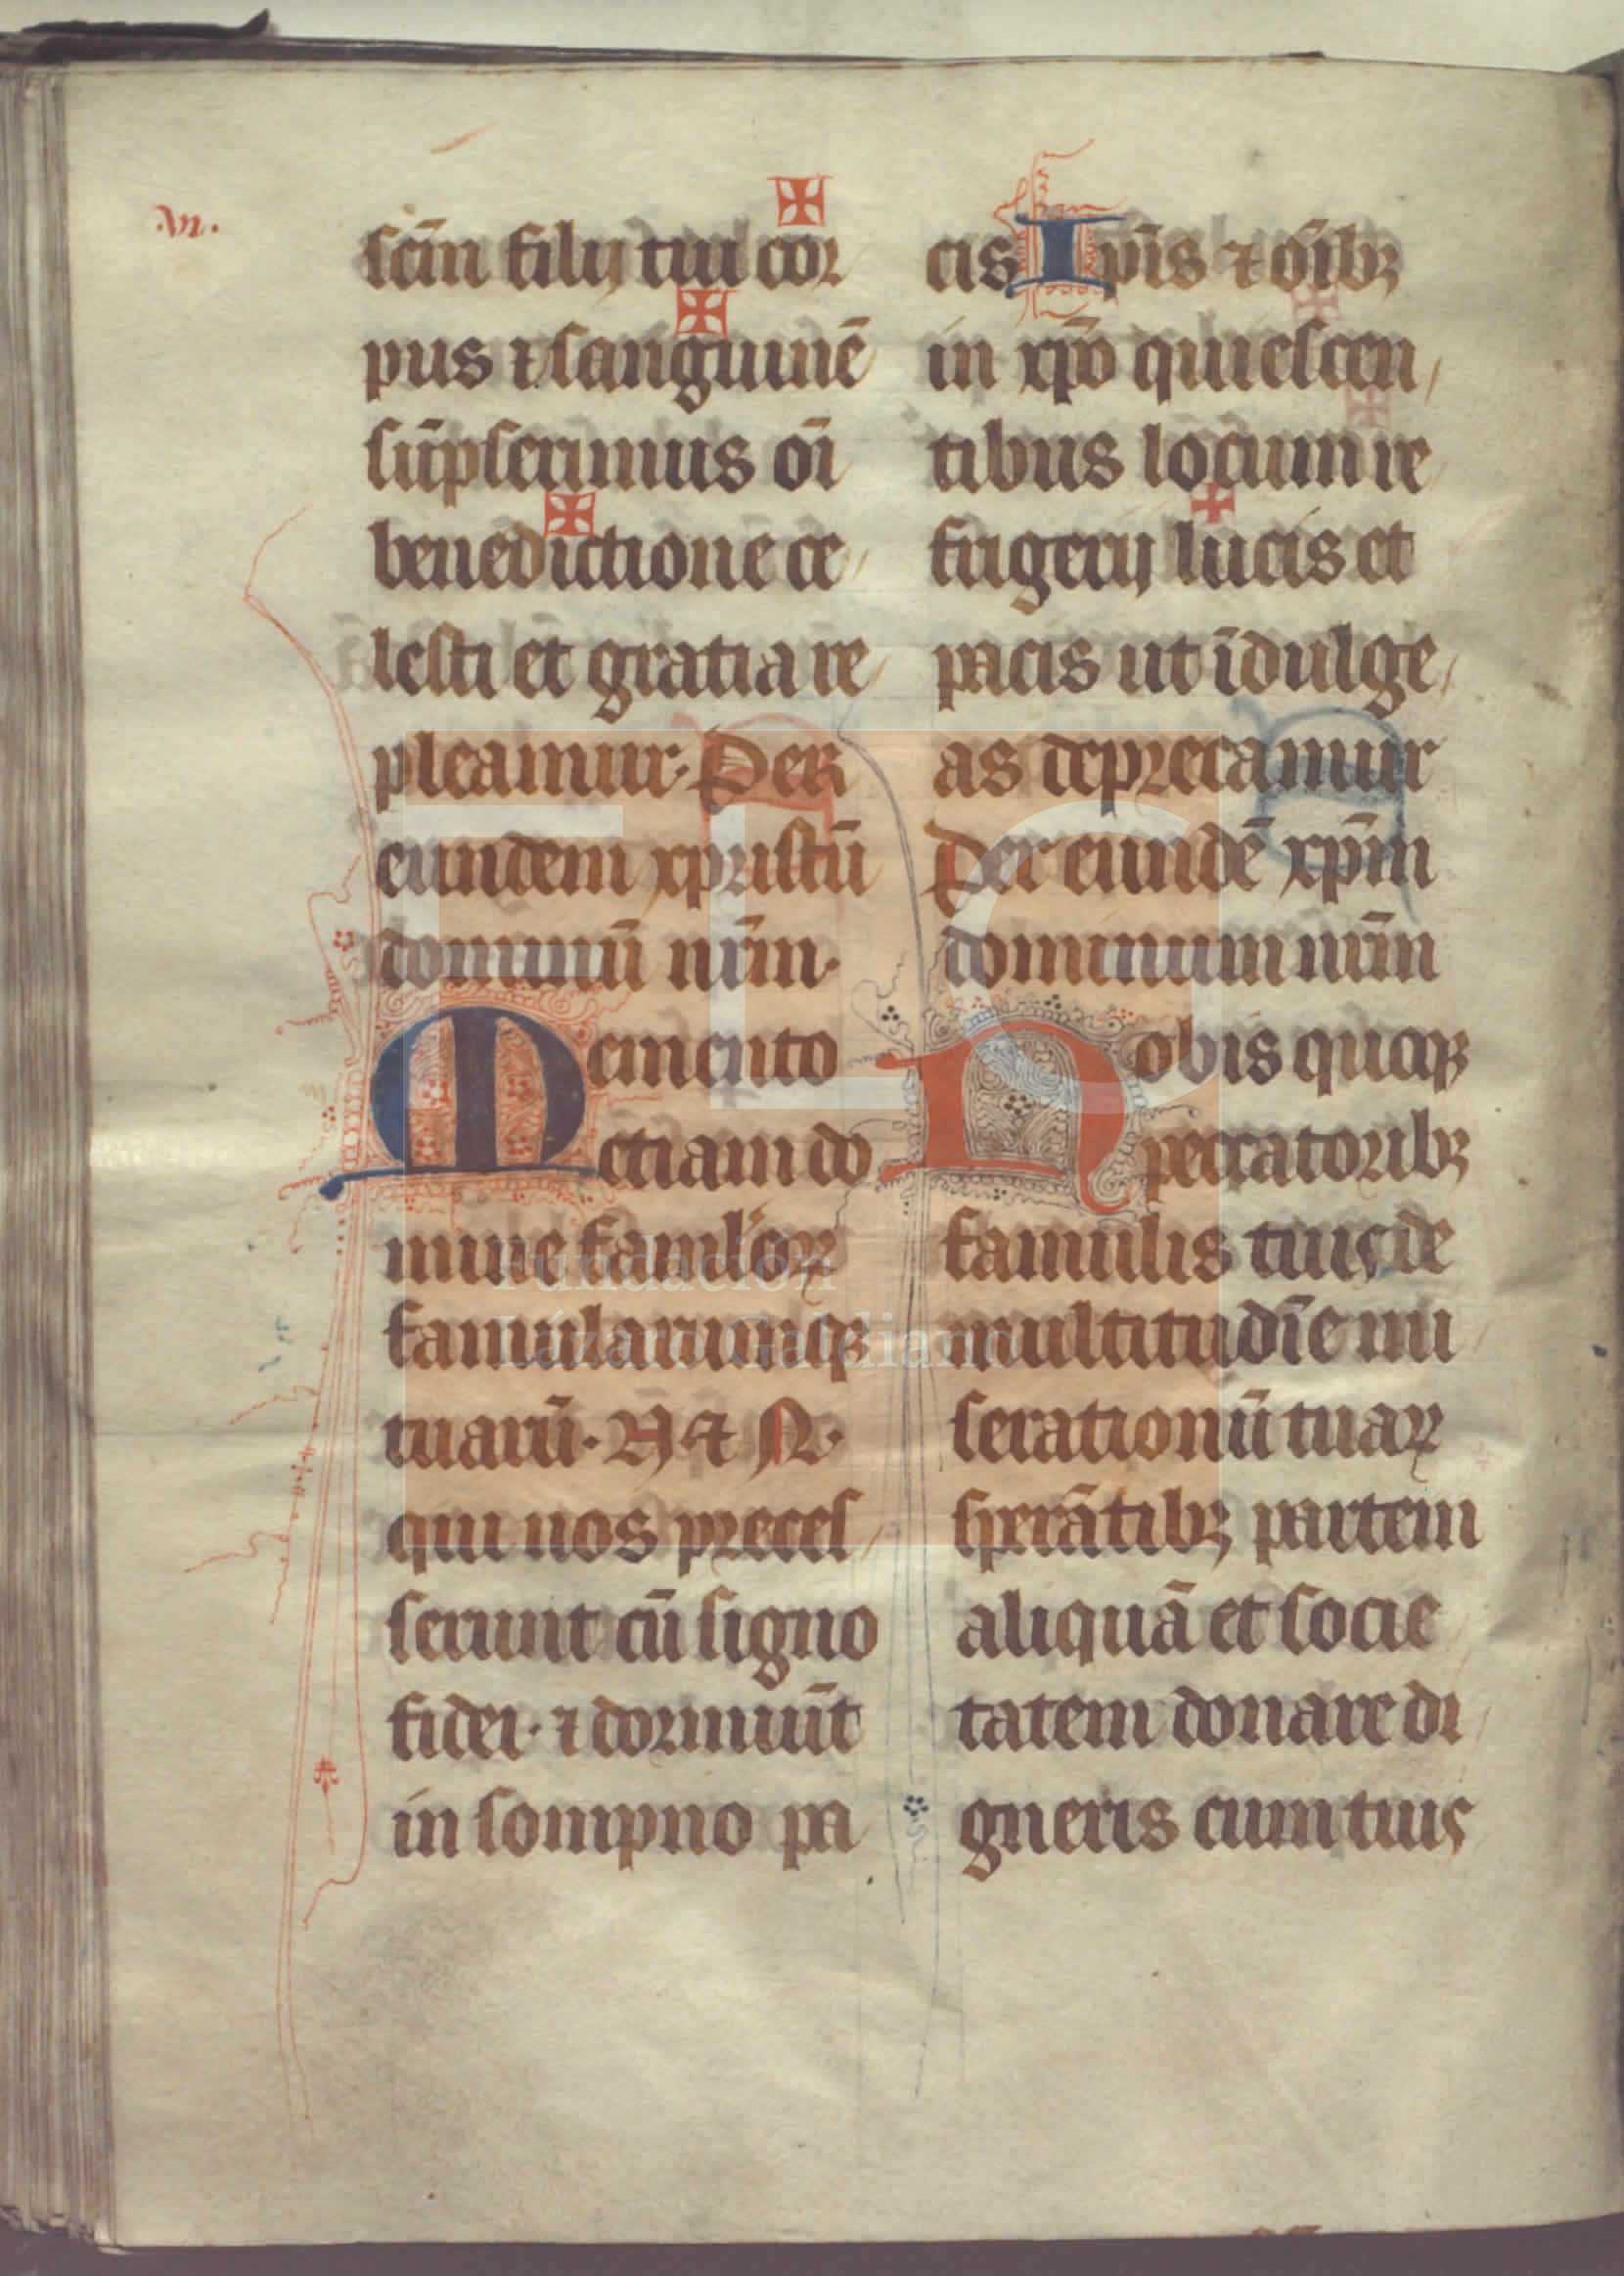 .vii.
scm̄ filij tui cor
pus ⁊ sanguinē
sūpserimus oī
benedictione ce
lesti et gratia re
pleamur. Per
eundem xpristū
dominū nr̄m.
Memento
etiam do
mine famuloꝝ
famularumqꝫ
tuarū. N ⁊ N.
qui nos preces
serunt cū signo
fidei. ⁊ dormiūt
in sompno pa
cis Ipīs ⁊ oīibꝫ
in xp̄o quiescen
tibus locum re
frigerij lucis et
pacis ut īdulge
as deprecamur
Per eundē xp̄m
dominum nr̄m
Nobis quoqꝫ
peccatoribꝫ
famulis tuis de
multitudīe mi
serationū tuaꝝ
sperātibꝫ partem
aliquā et socie
tatem donare di
gneris cum tuis
FLG
Fundación
Lázaro Galdiano